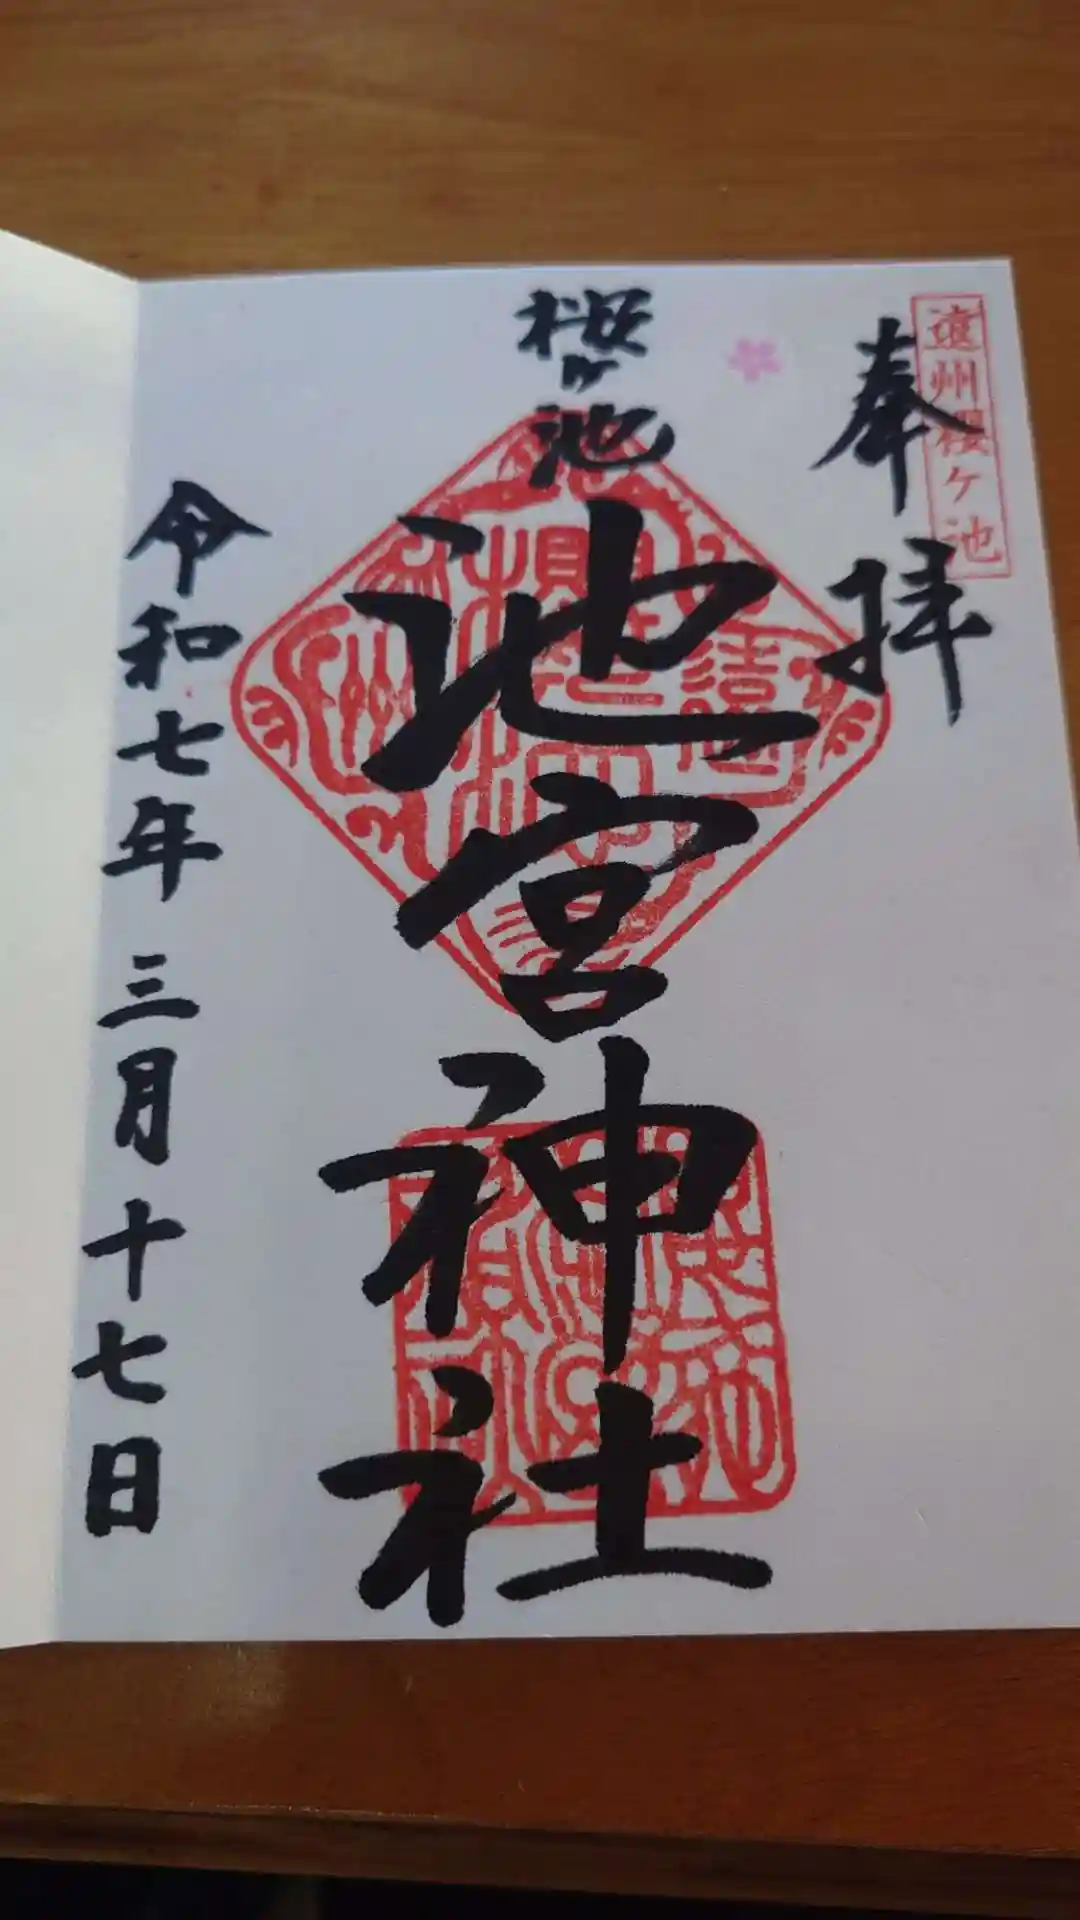 遠州櫻ケ池
奉拝
櫻ケ池
池宮神社
令和七年三月十七日